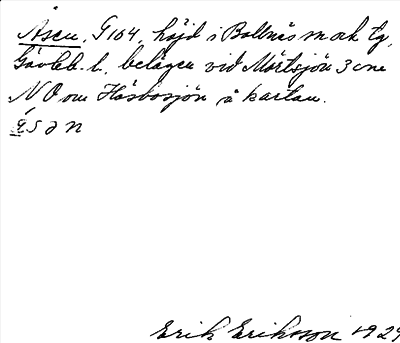 Åsen, G104, höjd i Bollnäs sn och tg,
Gävleb. l., belägen vid Mörtsjön 3 cm
NO om Häsbosjön å kartan.
Erik Eriksson 1929